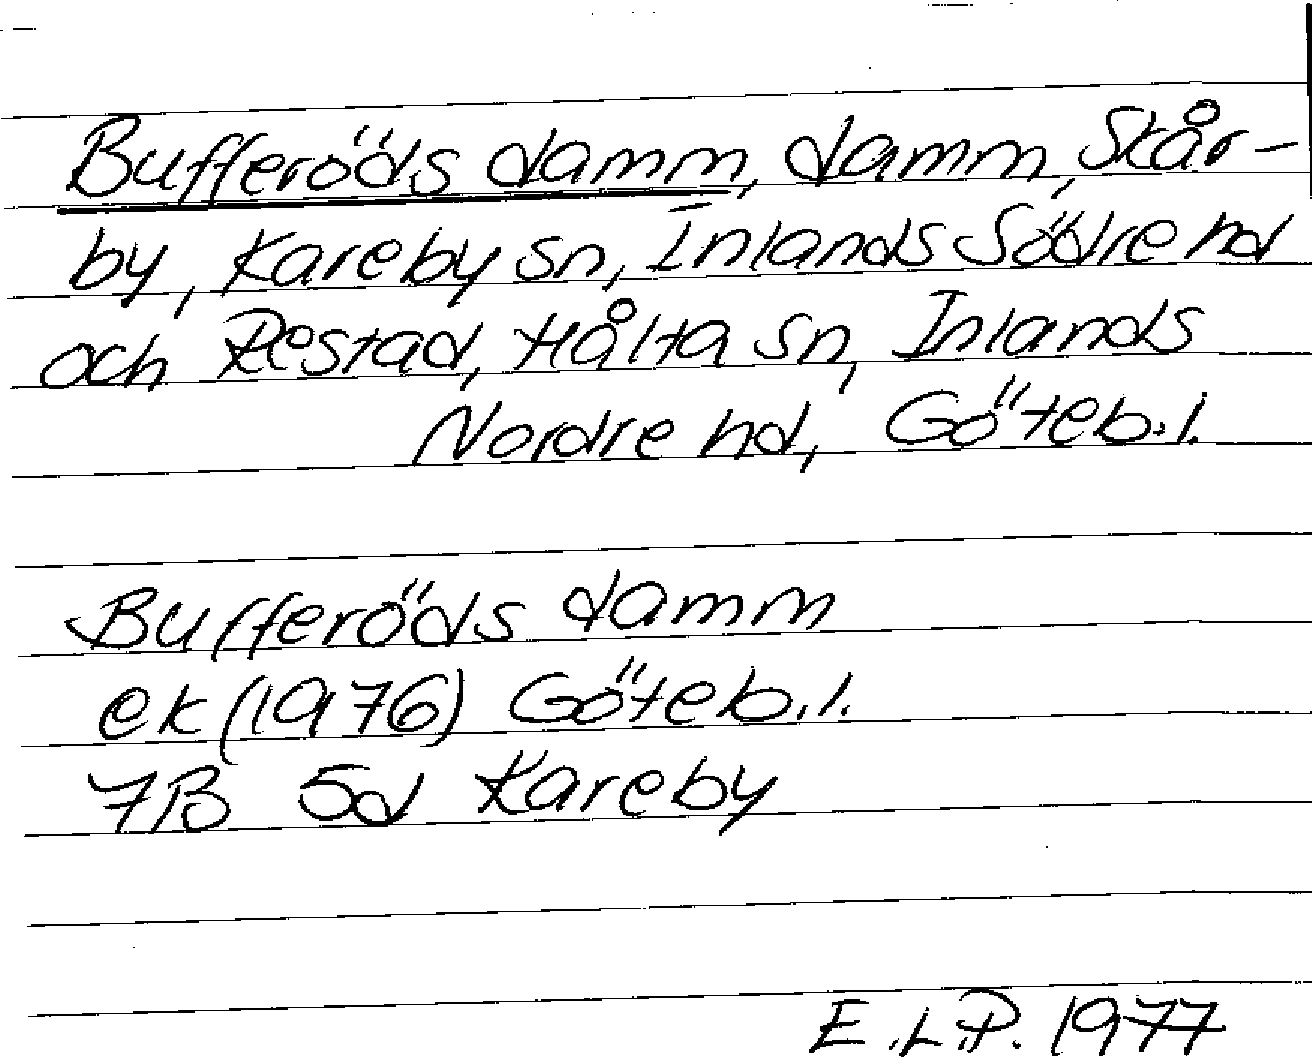 Bufferöds damm, damm, Skår-
by, Kareby sn, Inlands Södre hd
och Restad, Hålta sn, Inlands
Nordre hd, Göteb.l.
Bufferöds damm
ek (1976) Göteb.l.
7B 5d Kareby
E.L.P. 1977